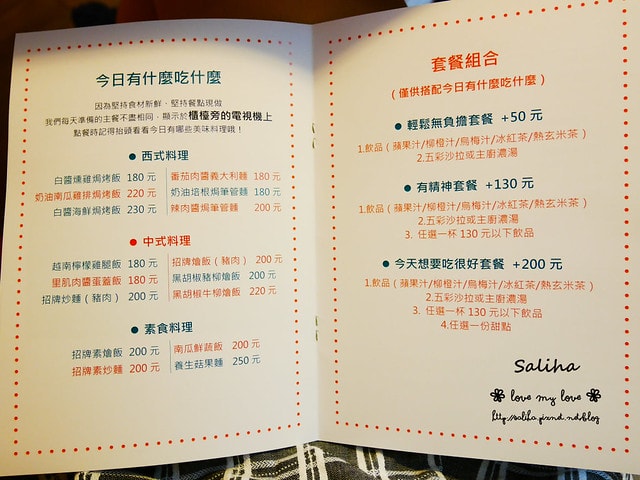 今日有什麼吃什麼
因為堅持食材新鮮、堅持餐點現做
我們每天準備的主餐不盡相同，顯示於櫃檯旁的電視機上
點餐時記得抬頭看看今日有哪些美味料理哦！
● 西式料理
白醬燻雞焗烤飯 180 元
奶油南瓜雞排焗烤飯 220 元
白醬海鮮焗烤飯 230 元
番茄肉醬義大利麵 180 元
奶油培根焗筆管麵 180 元
辣肉醬焗筆管麵 200 元
● 中式料理
越南檸檬雞腿飯 180 元
里肌肉醬蛋蓋飯 180 元
招牌炒麵（豬肉） 200 元
招牌燴飯（豬肉） 200 元
黑胡椒豬柳燴飯 200 元
黑胡椒牛柳燴飯 220 元
● 素食料理
招牌素燴飯 200 元
招牌素炒麵 200 元
南瓜鮮蔬飯 200 元
養生菇果麵 250 元
套餐組合
（僅供搭配今日有什麼吃什麼）
● 輕鬆無負擔套餐 +50 元
1.飲品（蘋果汁/柳橙汁/烏梅汁/冰紅茶/熱玄米茶）
2.五彩沙拉或主廚濃湯
● 有精神套餐 +130 元
1.飲品（蘋果汁/柳橙汁/烏梅汁/冰紅茶/熱玄米茶）
2.五彩沙拉或主廚濃湯
3. 任選一杯 130 元以下飲品
● 今天想要吃很好套餐 +200 元
1.飲品（蘋果汁/柳橙汁/烏梅汁/冰紅茶/熱玄米茶）
2.五彩沙拉或主廚濃湯
3. 任選一杯 130 元以下飲品
4.任選一份甜點
Saliha
love my love
http://saliha.pixnet.net/blog